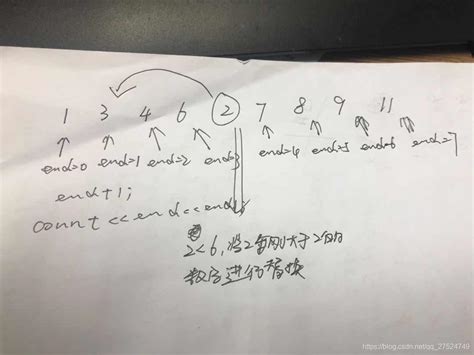 1 3 4 6 2 7 8 9 11
end=0 end=1 end=2 end=3 end=4 end=5 end=6 end=7
end+1;
count<<end<<endl;
2<6,将2
数字进行替换
https://blog.csdn.net/qq_27524749